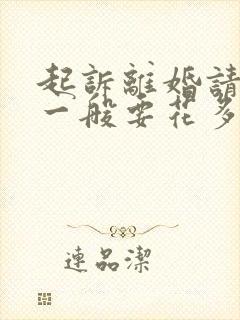 起訴離婚請
一般要花多
連品潔